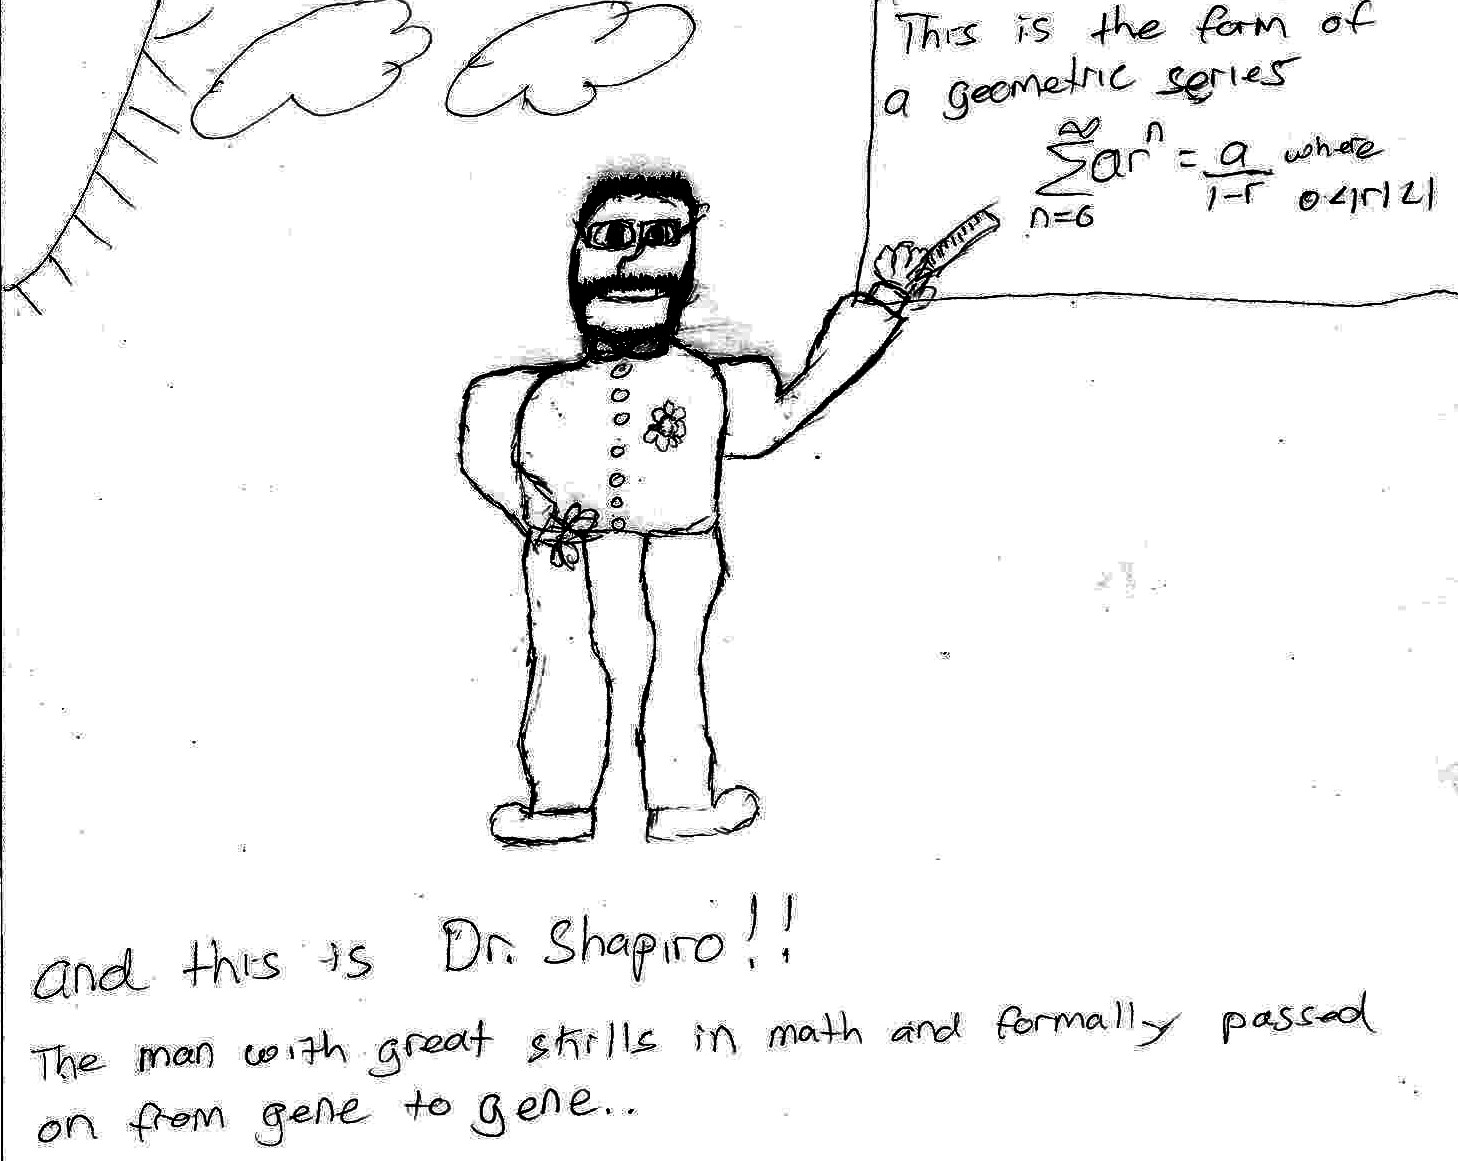 This is the form of
a geometric series
∞
∑ arⁿ = a/(1-r) where
n=0 0<|r|<1
and this is Dr. Shapiro!!
The man with great skills in math and formally passed
on from gene to gene..